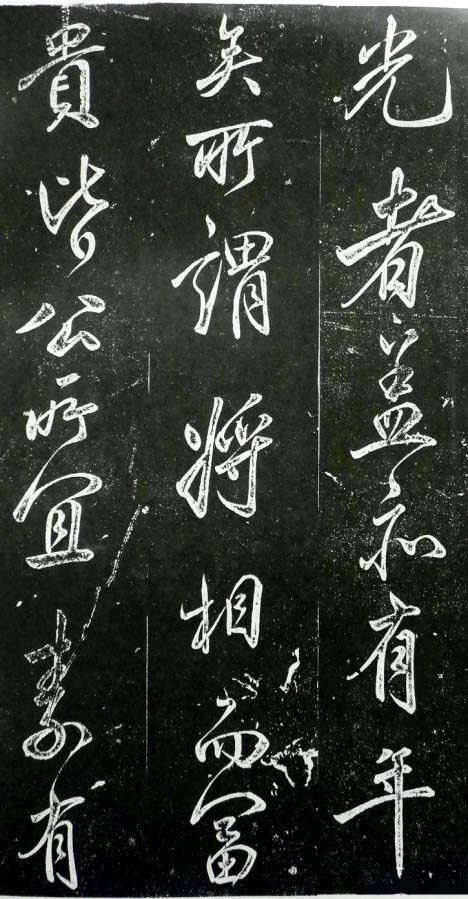 光者盖亦有年
矣所谓将相而富
貴皆公所宜素有